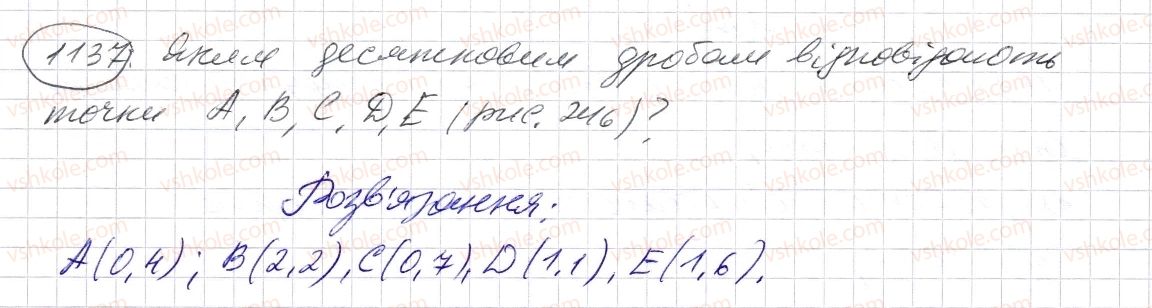 1137. Яким десятковим дробам відповідають
точки A, B, C, D, E (рис. 246)?
Розв'язання:
A(0,4); B(2,2), C(0,7), D(1,1), E(1,6).